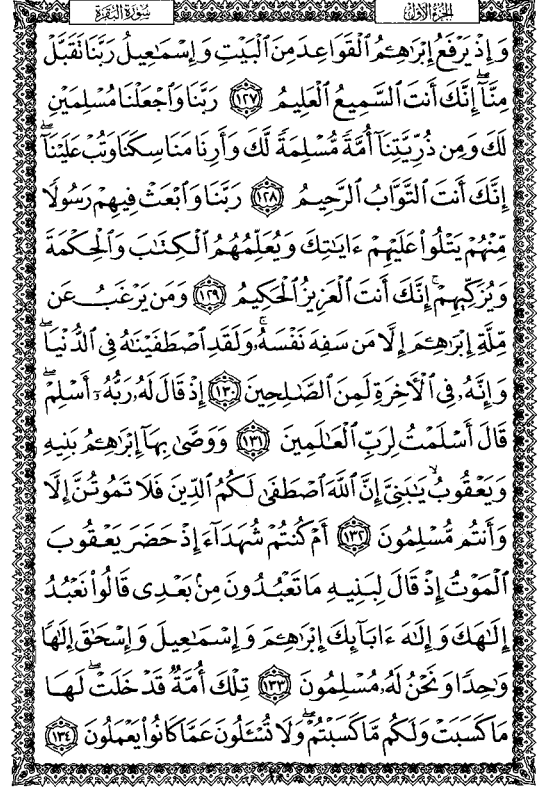 الجزء الأول سورة البقرة
وَإِذْ يَرْفَعُ إِبْرَٰهِـۧمُ ٱلْقَوَاعِدَ مِنَ ٱلْبَيْتِ وَإِسْمَٰعِيلُ رَبَّنَا تَقَبَّلْ
مِنَّآ ۖ إِنَّكَ أَنتَ ٱلسَّمِيعُ ٱلْعَلِيمُ ١٢٧ رَبَّنَا وَٱجْعَلْنَا مُسْلِمَيْنِ
لَكَ وَمِن ذُرِّيَّتِنَآ أُمَّةً مُّسْلِمَةً لَّكَ وَأَرِنَا مَنَاسِكَنَا وَتُبْ عَلَيْنَآ ۖ
إِنَّكَ أَنتَ ٱلتَّوَّابُ ٱلرَّحِيمُ ١٢٨ رَبَّنَا وَٱبْعَثْ فِيهِمْ رَسُولًا
مِّنْهُمْ يَتْلُوا۟ عَلَيْهِمْ ءَايَٰتِكَ وَيُعَلِّمُهُمُ ٱلْكِتَٰبَ وَٱلْحِكْمَةَ
وَيُزَكِّيهِمْ ۚ إِنَّكَ أَنتَ ٱلْعَزِيزُ ٱلْحَكِيمُ ١٢٩ وَمَن يَرْغَبُ عَن
مِّلَّةِ إِبْرَٰهِـۧمَ إِلَّا مَن سَفِهَ نَفْسَهُۥ ۚ وَلَقَدِ ٱصْطَفَيْنَٰهُ فِى ٱلدُّنْيَا ۖ
وَإِنَّهُۥ فِى ٱلْـَٔاخِرَةِ لَمِنَ ٱلصَّٰلِحِينَ ١٣٠ إِذْ قَالَ لَهُۥ رَبُّهُۥٓ أَسْلِمْ ۖ
قَالَ أَسْلَمْتُ لِرَبِّ ٱلْعَٰلَمِينَ ١٣١ وَوَصَّىٰ بِهَآ إِبْرَٰهِـۧمُ بَنِيهِ
وَيَعْقُوبُ يَٰبَنِىَّ إِنَّ ٱللَّهَ ٱصْطَفَىٰ لَكُمُ ٱلدِّينَ فَلَا تَمُوتُنَّ إِلَّا
وَأَنتُم مُّسْلِمُونَ ١٣٢ أَمْ كُنتُمْ شُهَدَآءَ إِذْ حَضَرَ يَعْقُوبَ
ٱلْمَوْتُ إِذْ قَالَ لِبَنِيهِ مَا تَعْبُدُونَ مِنۢ بَعْدِى قَالُوا۟ نَعْبُدُ
إِلَٰهَكَ وَإِلَٰهَ ءَابَآئِكَ إِبْرَٰهِـۧمَ وَإِسْمَٰعِيلَ وَإِسْحَٰقَ إِلَٰهًا
وَٰحِدًا وَنَحْنُ لَهُۥ مُسْلِمُونَ ١٣٣ تِلْكَ أُمَّةٌ قَدْ خَلَتْ ۖ لَهَا
مَا كَسَبَتْ وَلَكُم مَّا كَسَبْتُمْ ۖ وَلَا تُسْـَٔلُونَ عَمَّا كَانُوا۟ يَعْمَلُونَ ١٣٤